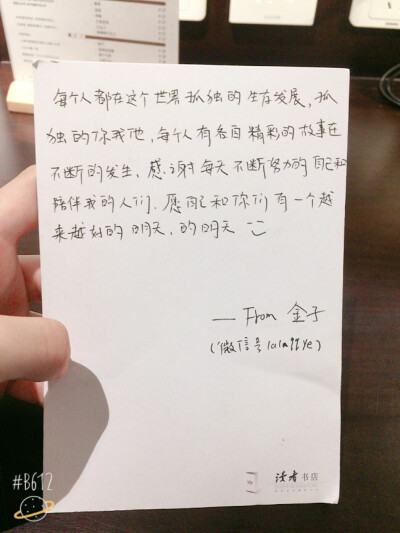 每个人都在这个世界孤独的生存发展,孤
独的你我他,每个人有各自精彩的故事在
不断的发生,感谢每天不断努力的自己和
陪伴我的人们.愿自己和你们有一个越
来越好的明天,的明天
— From 金子
(微信号
读者书店
#B612